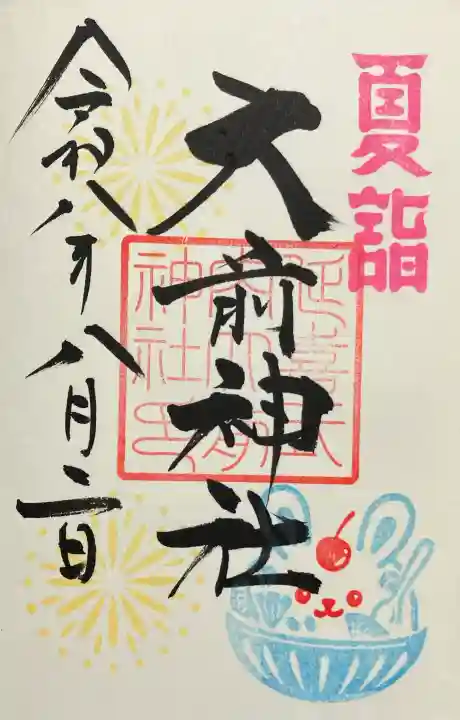 夏詣
大前神社
延喜式
内大前
神社印
令和八年八月二日